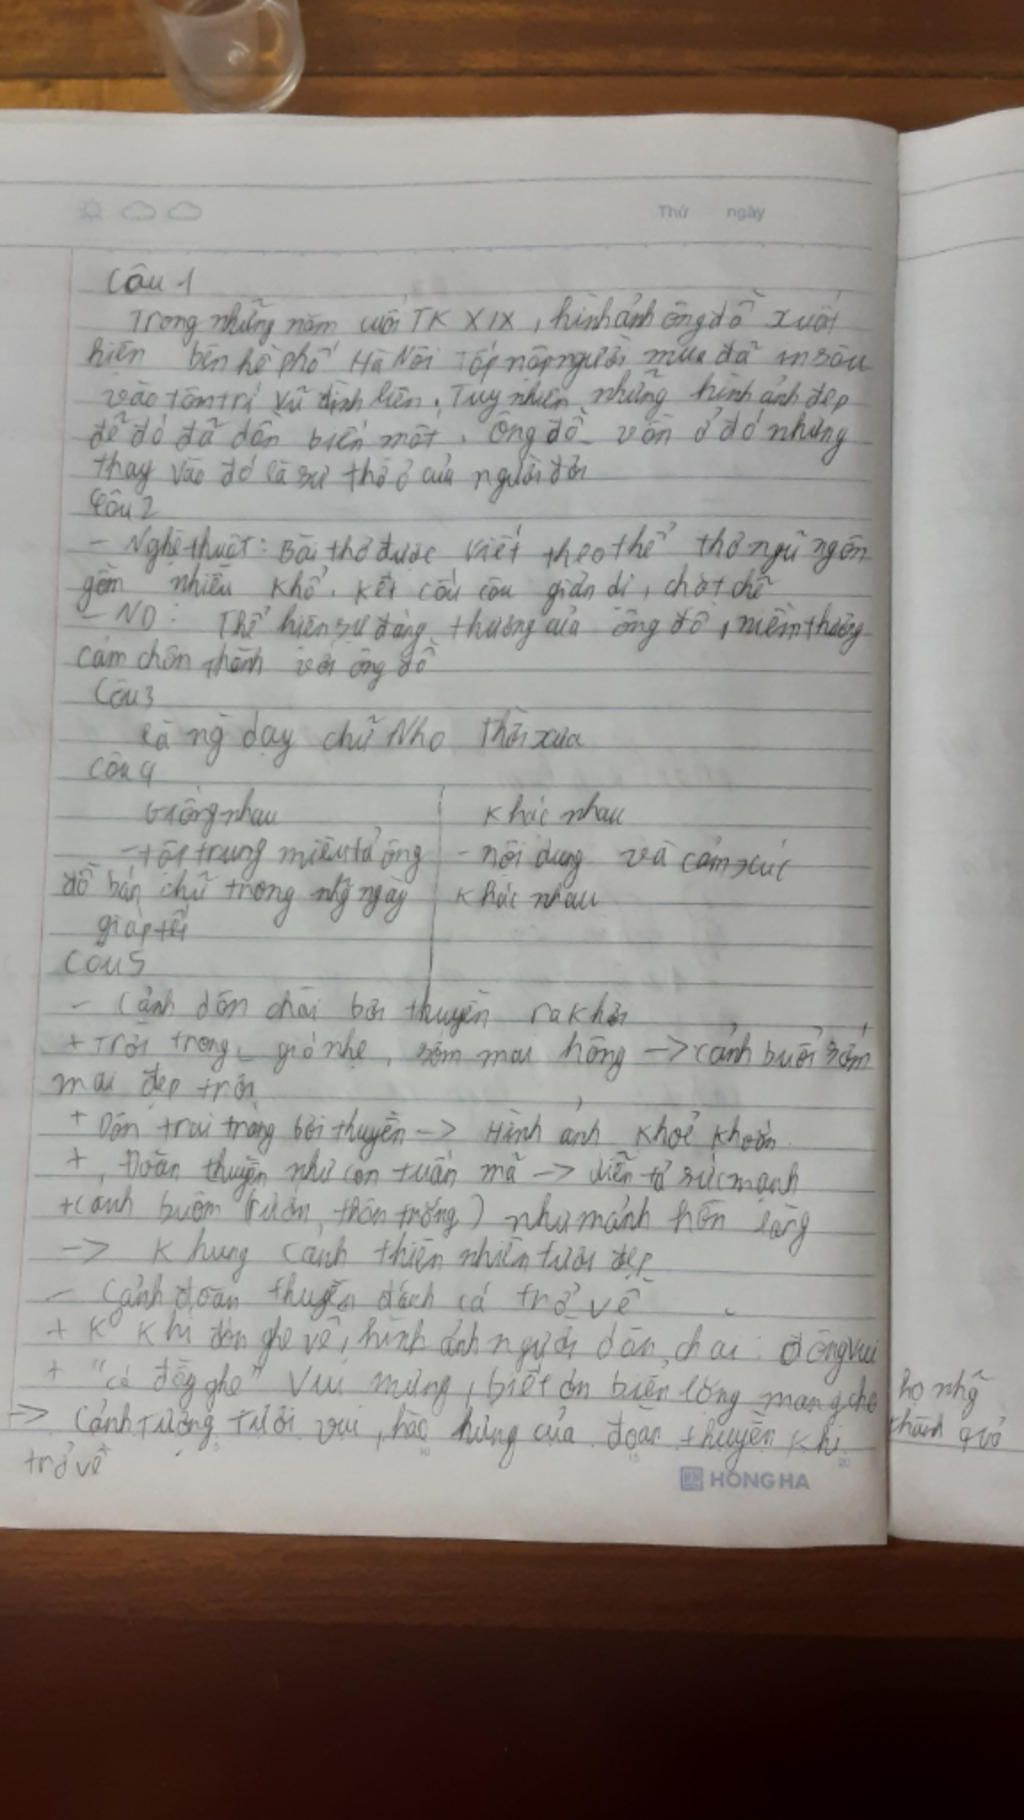 Thứ ngày
Câu 1
Trong những năm cuối TK XIX, hình ảnh ông đồ xuất
hiện bên hè phố Hà Nội tấp nập người mua đã in sâu
vào tâm trí Vũ Đình Liên. Tuy nhiên, những hình ảnh đẹp
đẽ đó đã dần biến mất. Ông đồ vẫn ở đó nhưng
thay vào đó là sự thờ ơ của người đời
Câu 2
- Nghệ thuật: Bài thơ được viết theo thể thơ ngũ ngôn
gồm nhiều khổ. Kết cấu câu giản dị, chặt chẽ
- ND: Thể hiện sự đáng thương của ông đồ, niềm thương
cảm chân thành với ông đồ
Câu 3
là ng dạy chữ Nho thời xưa
Câu 4
Giống nhau Khác nhau
- tập trung miêu tả ông - nội dung và cảm xúc
đồ bán chữ trong nhg ngày khác nhau
giáp tết
Câu 5
- Cảnh dân chài bơi thuyền ra khơi
+ Trời trong, gió nhẹ, sớm mai hồng -> cảnh buổi sớm
mai đẹp trời
+ Dân trai tráng bơi thuyền -> Hình ảnh khoẻ khoắn
+ Đoàn thuyền như con tuấn mã -> diễn tả sức mạnh
+ Cánh buồm (rướn thân trắng) như mảnh hồn làng
-> Khung cảnh thiên nhiên tươi đẹp
- Cảnh đoàn thuyền đách cá trở về
+ K° khí đón ghe về, hình ảnh người dân chài: đông vui
+ "cá đầy ghe" vui mừng, biết ơn biển lớng mang cho họ nhg
thành quả
-> Cảnh tượng tươi vui, hào hứng của đoàn thuyền khi
trở về
HONG HA